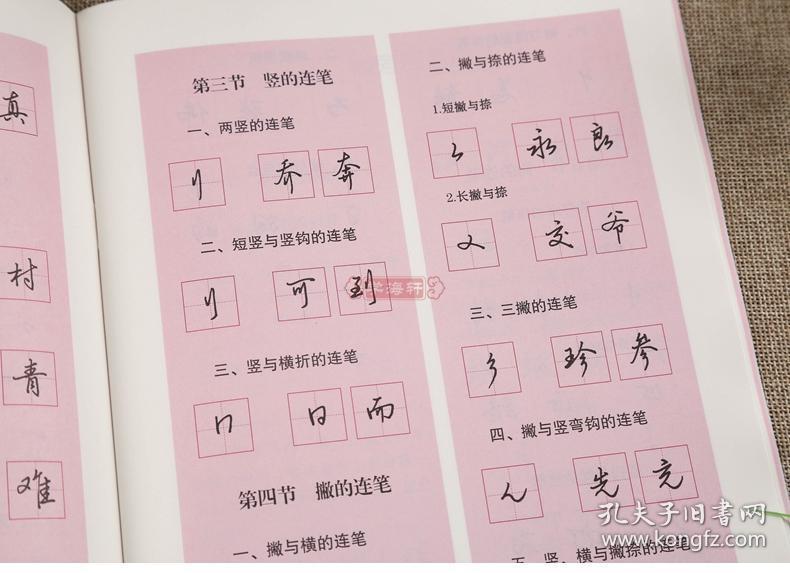 真
村
青
难
第三节 竖的连笔
一、两竖的连笔
乔 奔
二、短竖与竖钩的连笔
可 到
三、竖与横折的连笔
日 而
第四节 撇的连笔
一、撇与横的连笔
二、撇与捺的连笔
1.短撇与捺
永 良
2.长撇与捺
交 爷
三、三撇的连笔
珍 参
四、撇与竖弯钩的连笔
先 充
五、竖、横与撇捺的连笔
海轩
孔夫子旧书网
www.kongfz.com